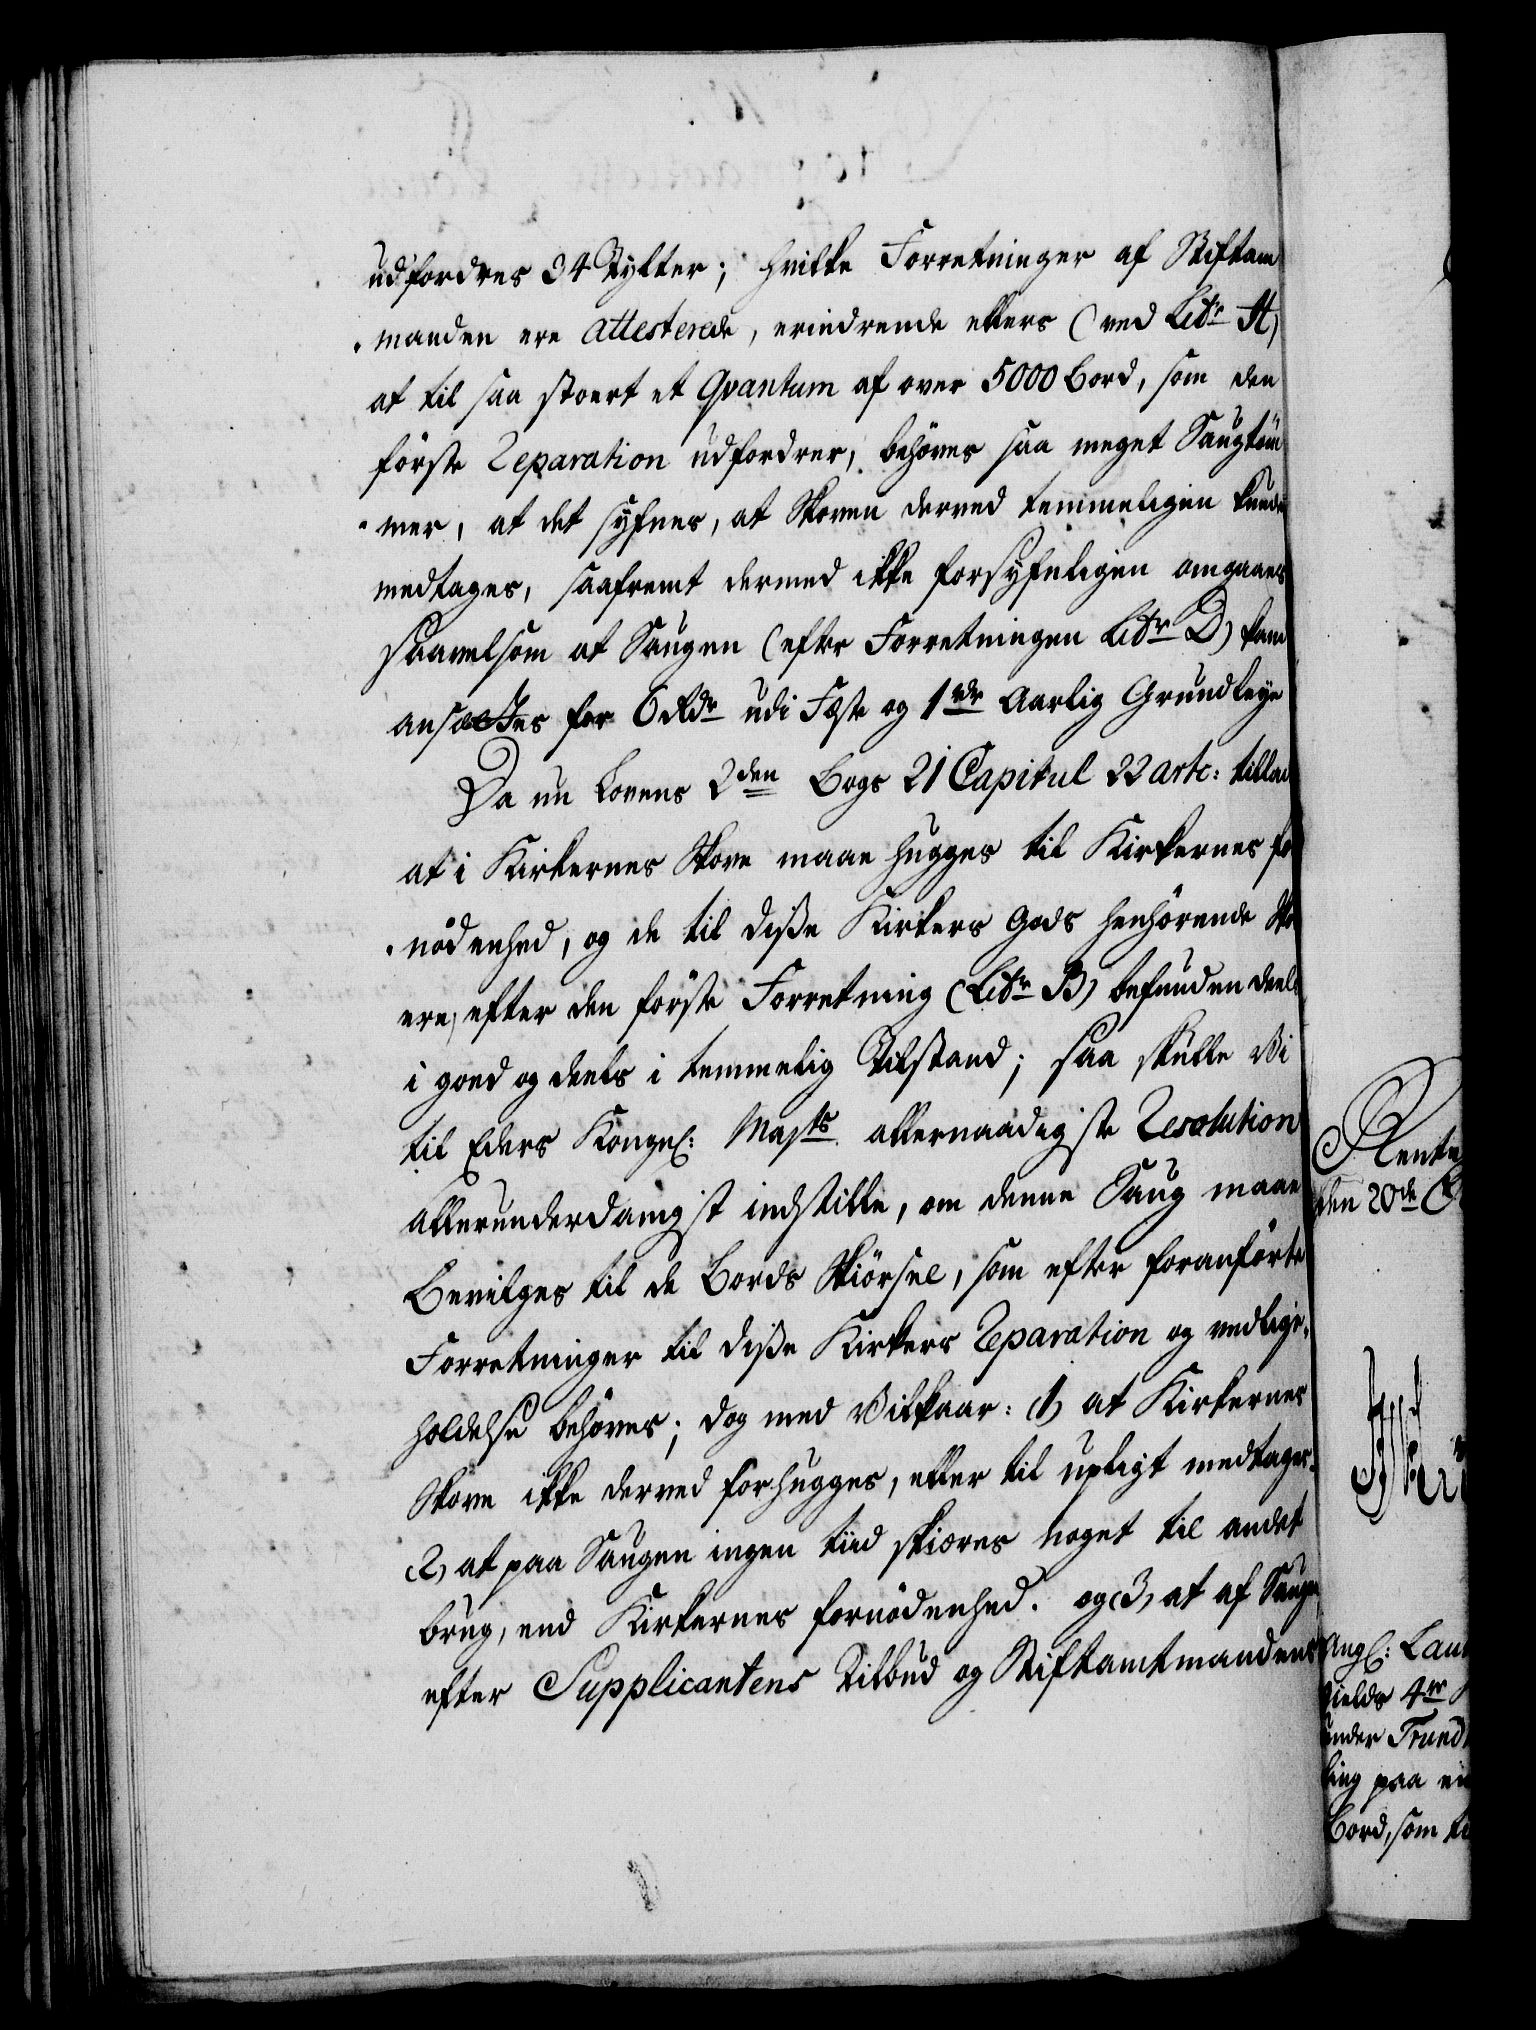 udfordres 34 Tylter; hvilke Forretninger af Stiftam
manden ere attesterede, erindrende ellers (ved Litr A)
at til saa stoert et Qvantum af over 5000 Bord, som den
förste Reparation udfordrer, behöves saa meget Saugtöm
mer, at det synes, at Skoven derved temmeligen kunde
medtages, saafremt dermed ikke forsynligen omgaaes
saavelsom at Saugen (efter Forretningen Litr D) kand
ansættes for 6 Rdr udi Fæste og 1 rdr Aarlig Grundleye
Da nu Lovens 2den Bogs 21 Capitul 22 artc: tillad
at i Kirkernes Skove maae hugges til Kirkernes for
nödenhed, og de til disse Kirkers Gods henhörende Sko
ere, efter den förste Forretning (Litr B) befunden deels
i goed og deels i temmelig Tilstand; saa skulle Vi
til Eders Kongel: Majts allernaadigste Resolution
allerunderdanigst indstille, om denne Saug maae
Bevilges til de Bords Skiörsel, som efter foranförte
Forretninger til disse Kirkers Reparation og vedlige
holdelse behöves; dog med Vilkaar: (1) at Kirkernes
Skove ikke derved forhugges, eller til upligt medtages.
(2) at paa Saugen ingen tiid skiæres noget til andet
brug, end Kirkernes fornödenhed. og (3) at af Saugen
efter Supplicantens Tilbud og Stiftamtmandens
Rente
den 20de
Angl: Lau
field 4re
under Trund
ling paa ei
Bord, som ti